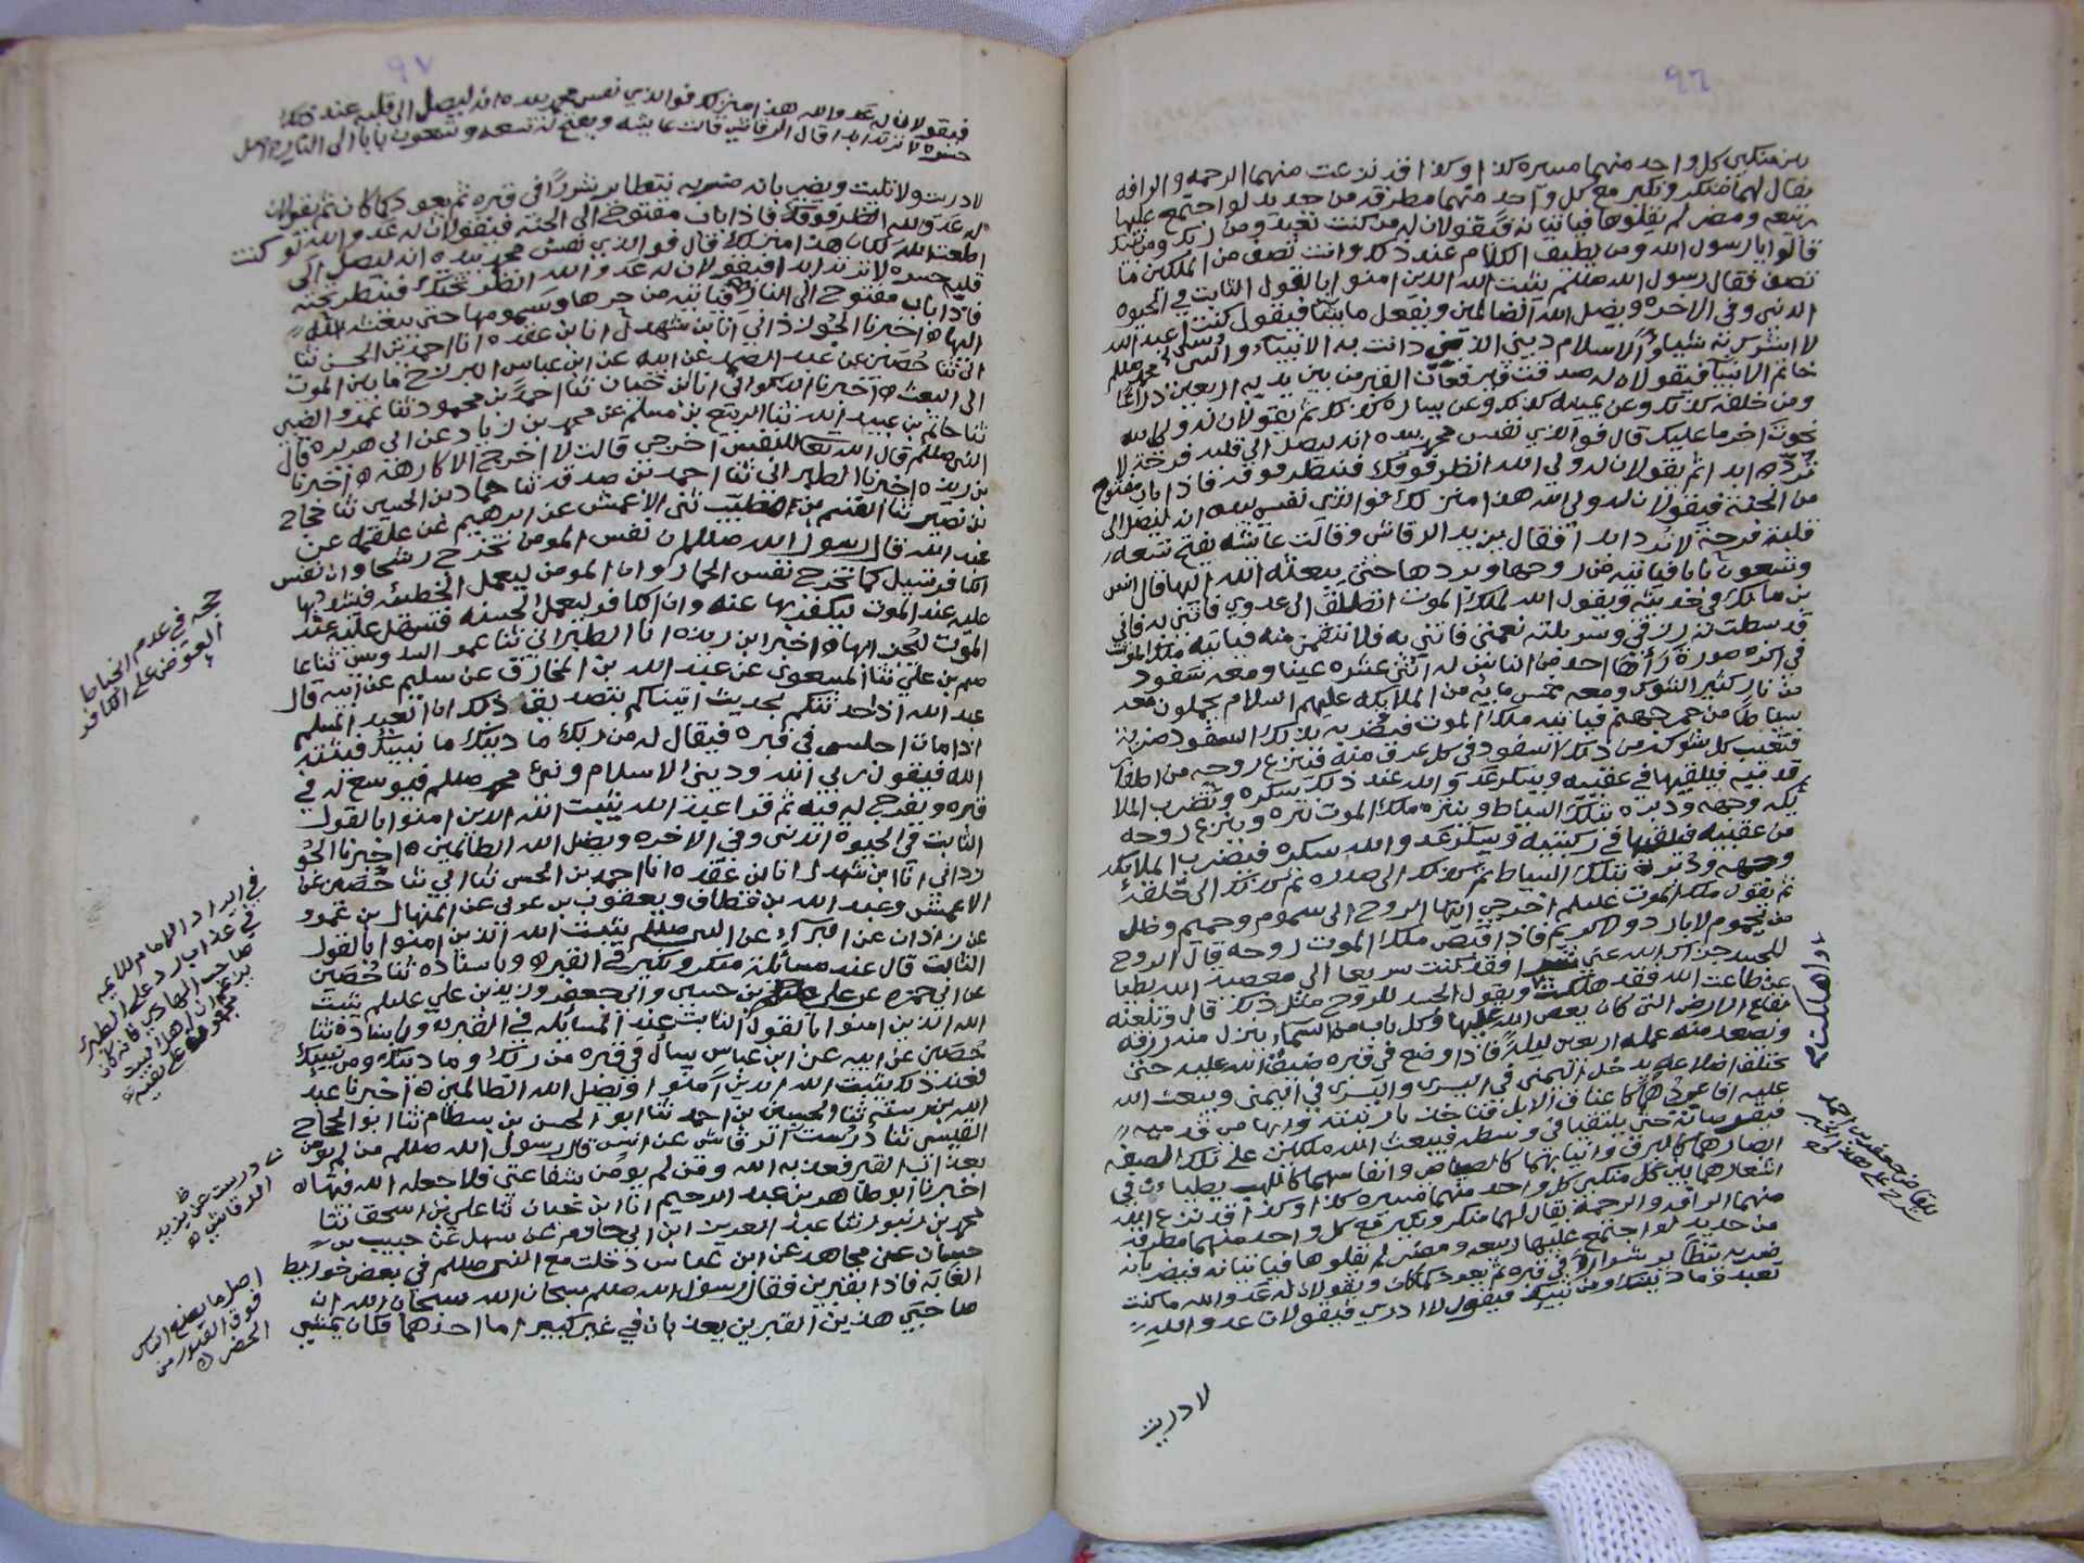 ٩٦
بين منكبي كل واحد منهما مسيره كذا وكذا قد نزعت منهما الرحمه والرافه
يقال لهما منكر ونكير مع كل واحد منهما مطرقه من حديد لو اجتمع عليها
ربيعه ومضر لم يقلوها فياتيانه فيقولان له من كنت تعبد ومن ربك ومن نبيك
قالوا يا رسول الله ومن يطيق الكلام عند ذلك وانت تصف من الملكين ما
تصف فقال رسول الله صللم يثبت الله الذين امنوا بالقول الثابت في الحيوه
الدنيى وفي الاخره ويضل الله الظالمين ويفعل ما يشا فيقول كنت اعبد الله
لا اشرك به شيا والاسلام ديني الذي دانت به الانبياء ونبيي محمد صللم
خاتم الانبيا فيقولان له صدقت فيرفعان القبر من بين يديه اربعين ذراعا
ومن خلفه كذلك وعن يمينه كذلك وعن يساره كذلك ثم يقولان له ولي الله
نجوت اخر ما عليك قال فوالذي نفس محمد بيده انه ليصل الى قلبه فرحة لا
ترد ابدا ثم يقولان له ولي الله انظر فوقك فينظر فوقه فاذا باب مفتوح
من الجنة فيقولان له ولي الله هذا منزلك فوالذي نفسي بيده انه ليصل الى
قلبه فرحة لا ترد ابدا فقال يزيد الرقاشي وقالت عايشه يفتح تسعه
وسبعون بابا فياتيه من روحها وبردها حتى يبعثه الله اليها قال انس
بن مالك في حديثه ويقول الله لملك الموت انطلق الى عدوي فاتني به فاني
قد بسطت له رزقي وسربلته نعمتي فاتني به فلانتقمن منه فياتيه ملك الموت
في اكره صورة رأها احد من الناس له اثنى عشره عينا ومعه سفود
من نار كثير الشوك ومعه خمس مايه من الملايكه عليهم السلام يحملون معه
سياطا من جمر جهنم فياتيه ملك الموت فيضربه بذلك السفود ضربة
فتغيب كل شوكه من ذلك السفود في كل عرق منه فينزع روحه من اظفار
قدميه فيلقيها في عقبيه ويسكر عدو الله عند ذلك سكره وتضرب الملا
يكه وجهه ودبره بتلك السياط وينتره ملك الموت نتره وينزع روحه
من عقبيه فيلقيها في ركبتيه ويسكر عدو الله سكره فيضرب الملايكه
وجهه ودبره بتلك السياط ثم كذلك الى صدره ثم كذلك الى حلقه
ثم يقول ملك الموت عليلم اخرجي ايتها الروح الى سموم وحميم وظل
من يحموم لا بارد ولا كريم فاذا قبض ملك الموت روحه قال الروح
للجسد جزاك الله عني شرا فقد كنت سريعا الى معصية الله بطيا
عن طاعت الله فقد هلكت ويقول الجسد للروح مثل ذلك قال وتلعنه
بقاع الارض التي كان يعصي الله عليها وكل باب من السماء ينزل منه رزقه
ويصعد منه عمله اربعين ليلة فاذا وضع في قبره ضيق الله عليه حتى
تختلف اضلاعه يدخل اليمنى في اليسرى واليسرى في اليمنى ويبعث الله
عليه افاعي دهما كاعناق الابل فتاخذ بارنبته وابهامي قدميه
فيقرضانه حتى يلتقيا في وسطه فيبعث الله ملكين على تلك الصفه
ابصارهما كالبرق وانيابهما كالصياصي وانفاسهما كاللهب يطيان في
اشعارهما بين كل منكبي كل واحد منهما مسيره كذا وكذا قد نزع الله
منهما الرافه والرحمة يقال لهما منكر ونكير مع كل واحد منهما مطرقه
من حديد لو اجتمع عليها ربيعه ومضر لم يقلوها فياتيانه فيضربانه
ضربه يتطاير شرارا في قبره ثم يعود كما كان ويقولان له عدو الله ما كنت
تعبد وما دينك ومن نبيك فيقول لا ادري فيقولان عدو الله
لا دريت
او اهلكت
للقاضي جعفر بن احمد
٩٧
فيقولان له عدو الله هذا منزلك فوالذي نفس محمد بيده انه ليصل الى قلبه عند ذلك
حسره لا ترتد ابدا قال الرقاشي قالت عايشه ويفتح له تسعه وسبعون بابا الى النار
لا دريت ولا تليت ويضربانه ضربه يتطاير شررا في قبره ثم يعود كما كان ثم يقولان
له عدو الله انظر فوقك فاذا باب مفتوح الى الجنة فيقولان له عدو الله لو كنت
اطعت الله لكان هذا منزلك قال فوالذي نفس محمد بيده انه ليصل الى
قلبه حسره لا ترتد ابدا فيقولان له عدو الله انظر تحتك فينظر تحته
فاذا باب مفتوح الى النار فياتيه من حرها وسمومها حتى يبعثه الله
اليها ه اخبرنا الجوزداني انا بن شهدل انا بن عقده انا احمد بن الحسن ثنا
ابي ثنا حصين عن عبد الصمد عن ابيه عن ابن عباس البرزخ ما بين الموت
الى البعث ه اخبرنا الذكواني انا بن حيان ثنا احمد بن محمود ثنا عمرو الضبي
ثنا حاتم بن عبيد الله ثنا الربيع بن مسلم عن محمد بن زياد عن ابي هريره قال
النبي صللم قال الله تعالى للنفس اخرجي قالت لا اخرج الا كارهة ه اخبرنا
بن ريذه اخبرنا الطبراني ثنا احمد بن صدقه ثنا حماد بن الحسن ثنا حجاج
بن نصير ثنا القسم بن مطيب ثنى الاعمش عن ابرهيم عن علقمه عن
عبد الله قال رسول الله صللم ان نفس المومن تخرج رشحا وان نفس
الكافر تسيل كما تخرج نفس الحمار وان المومن ليعمل الخطيئه فيشدد بها
عليه عند الموت ليكفر بها عنه وان الكافر ليعمل الحسنه فتسهل عليه عند
الموت ليجزى بها ه اخبرنا ابن ريذه انا الطبراني ثنا عمر السدوسي ثنا عا
صم بن علي ثنا المسعودي عن عبد الله بن المخارق عن سليم عن ابيه قال
عبد الله اذا حدثتكم بحديث اتيناكم بتصديق ذلك ان العبد المسلم
اذا مات اجلس في قبره فيقال له من ربك ما دينك ما نبيك فيثبته
الله فيقول ربي الله وديني الاسلام ونبي محمد صللم فيوسع له في
قبره ويفرج له فيه ثم قرا عبد الله يثبت الله الذين امنوا بالقول
الثابت في الحيوة الدنيى وفي الاخره ويضل الله الظالمين ه اخبرنا الجو
زداني انا ابن شهدل انا ابن عقده انا احمد بن الحسن ثنا ابي ثنا حصين عن
الاعمش وعبد الله بن قطاف ويعقوب بن عربي عن المنهال بن عمرو
عن زاذان عن البرآء عن النبي صللم يثبت الله الذين امنوا بالقول
الثابت قال عند مسآئلة منكر ونكير في القبر ه وباسناده ثنا حصين
عن ابي حمزه عن علي بن حسين وابي جعفر وزيد بن علي عليلم يثبت
الله الذين امنوا بالقول الثابت عند المسائله في القبر ه وباسناده ثنا
حصين عن ابيه عن ابن عباس يسأل في قبره من ربك وما دينك ومن نبيك
فعند ذلك يثبت الله الذين آمنوا ويضل الله الظالمين ه اخبرنا عبد
الله بن رسته ثنا الحسين بن احمد ثنا ابو الحسن بن بسطام ثنا ابو الحجاج
القيسي ثنا درست الرقاشي عن انس قال رسول الله صللم من لم يومن
بعذاب القبر فعذبه الله ومن لم يومن بشفاعتي فلا جعله الله فيها ه
اخبرنا ابو طاهر بن عبد الرحيم انا ابن حيان ثنا علي بن اسحق ثنا
محمد بن زنبور ثنا عبد العزيز ابن ابي حازم عن سهل عن حبيب بن
حسان عن مجاهد عن ابن عباس دخلت مع النبي صللم في بعض خوايط
الغابه فاذا بقبرين فقال رسول الله صللم سبحان الله سبحان الله ان
صاحبي هذين القبرين يعذبان في غير كبير اما احدهما فكان يمشي
حجه في عدم احباط
العوض على الكافر
في ايراد الامام للادعيه
في عذاب
صاحب
درست عن يزيد
الرقاشي ه
اصل ما يضع الناس
فوق القبور من
الخضره